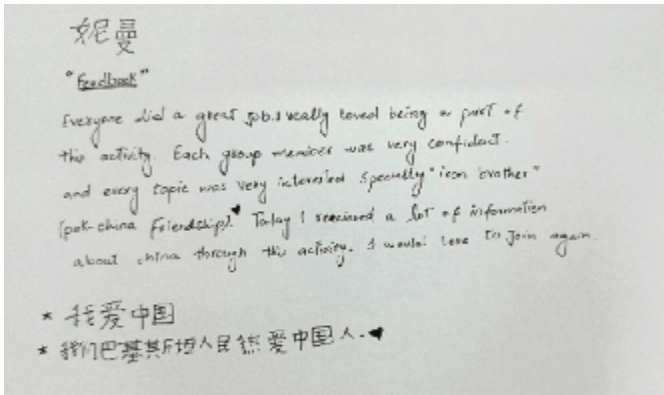 妮曼
"Feedback"
Everyone did a great job. I really loved being a part of
this activity. Each group member was very confident.
and every topic was very interested specially "iron brother"
(pak-china Friendship). ♥ Today I received a lot of information
about china through this activity. I would love to join again.
* 我爱中国
* 我们巴基斯坦人民热爱中国人. ♥